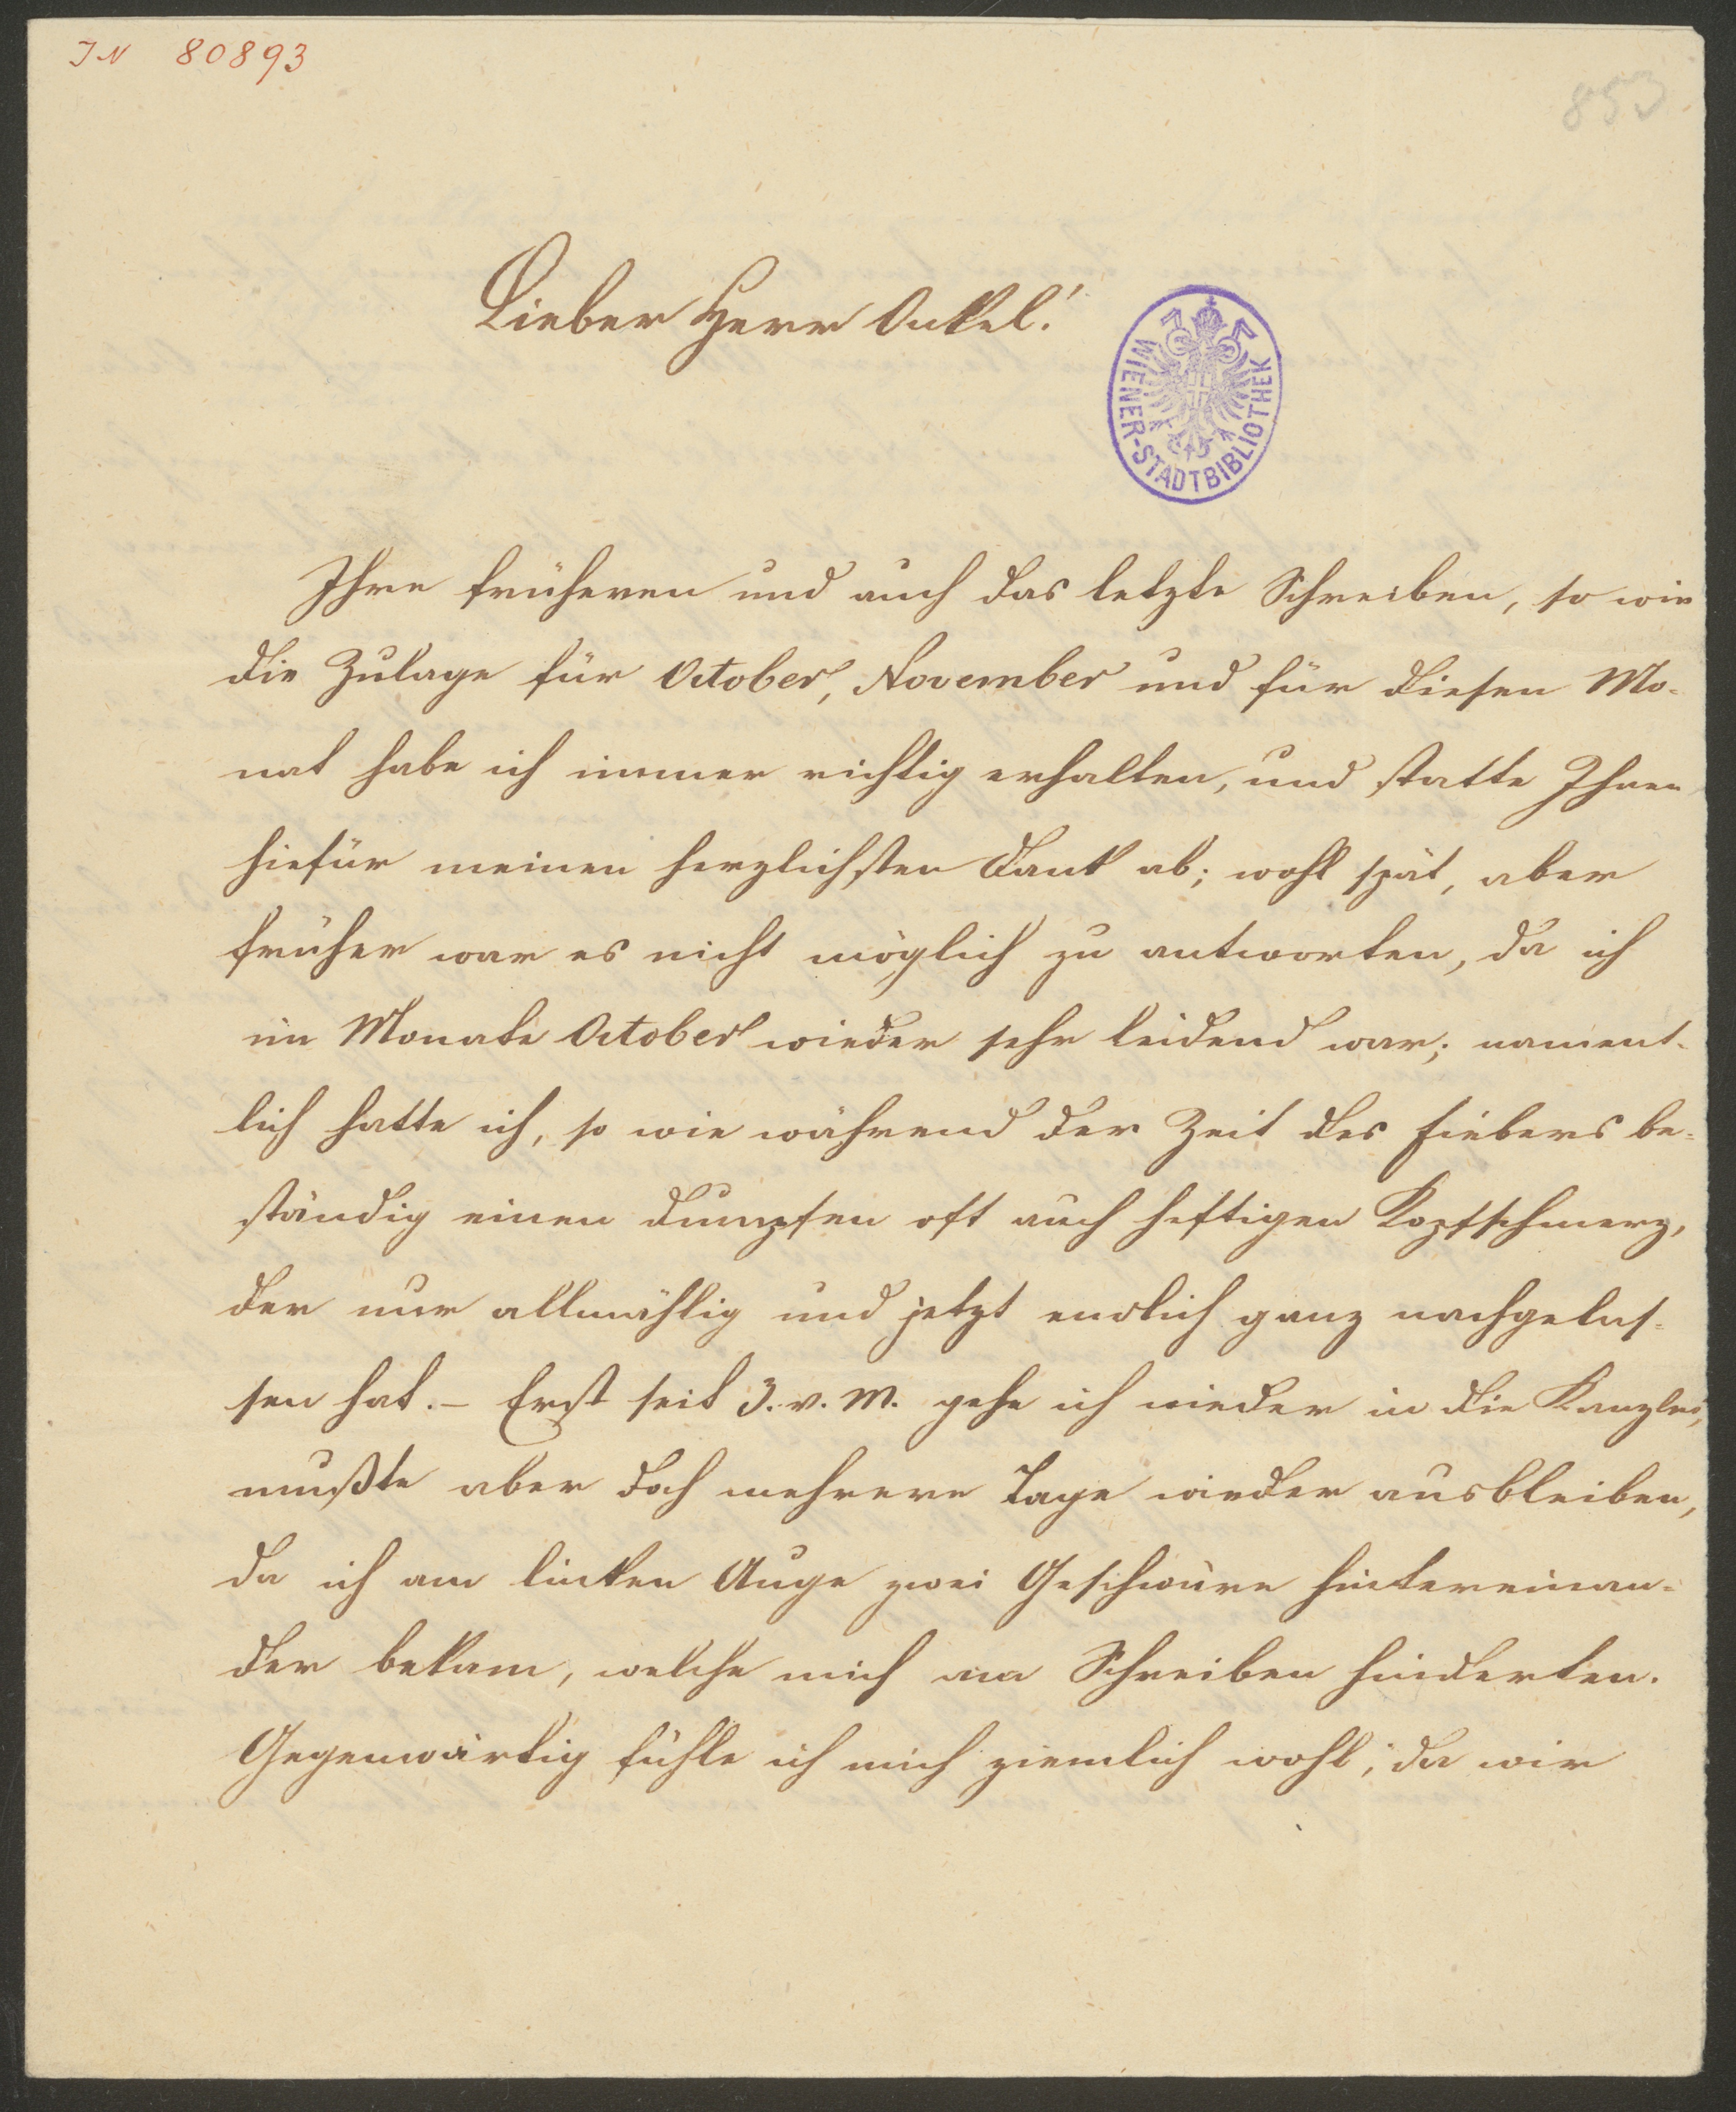 IN 80893
853
Lieber Herr Onkel!
WIENER-STADTBIBLIOTHEK
Ihre früheren und auch das letzte Schreiben, so wie
die Zulage für October, November und für diesen Mo-
nat habe ich immer richtig erhalten, und statte Ihnen
hiefür meinen herzlichsten Dank ab; wohl spät, aber
früher war es nicht möglich zu antworten, da ich
im Monate October wieder sehr leidend war; nament-
lich hatte ich, so wie während der Zeit des Fiebers be-
ständig einen dumpfen oft auch heftigen Kopfschmerz,
der nur allmählig und jetzt endlich ganz nachgelas-
sen hat. – Erst seit 3. v. M. gehe ich wieder in die Kanzlei,
mußte aber doch mehrere Tage wieder ausbleiben,
da ich am linken Auge zwei Geschwüre hintereinan-
der bekam, welche mich am Schreiben hinderten.
Gegenwärtig fühle ich mich ziemlich wohl; da wir